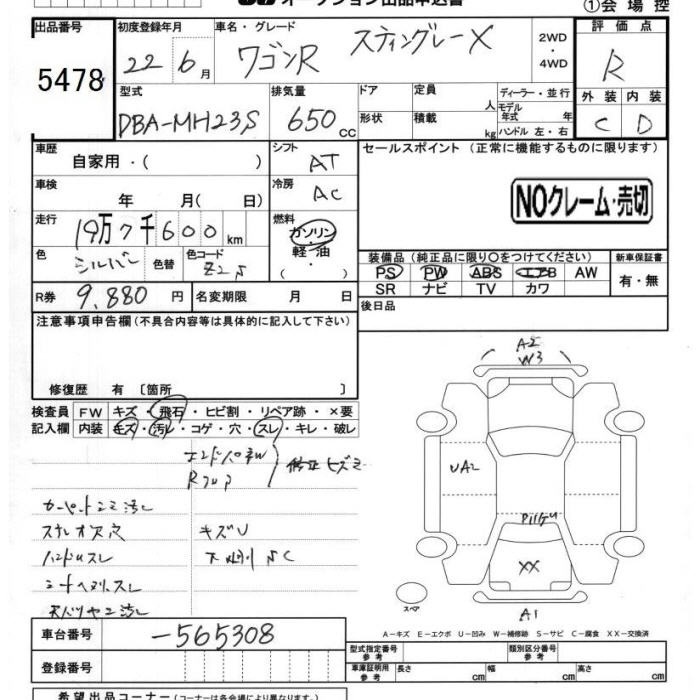 オークション出品申込書
①会場控
出品番号
5478
初度登録年月
22年6月
車名・グレード
ワゴンR スティングレーX
2WD
・
4WD
評価点
R
外装 内装
C D
型式
DBA-MH23S
排気量
650 cc
ドア
形状
定員 人
積載 kg
ディーラー・並行
モデル年式 年
ハンドル 左・右
車歴
自家用・( )
シフト
AT
車検
年 月( 日)
冷房
AC
走行
19万7千600 km
燃料
ガソリン
軽・油
( )
色
シルバー
色替
色コード
Z2S
R券 9,880 円
名変期限 月 日
セールスポイント(正常に機能するものに限ります)
NOクレーム・売切
装備品(純正品に限り○をつけてください)
新車保証書
PS PW ABS エアB AW
SR ナビ TV カワ
有・無
後日品
注意事項申告欄(不具合内容等は具体的に記入して下さい)
修復歴 有〔箇所 〕
検査員記入欄
FW キズ・飛石・ヒビ割・リペア跡・×要
内装 キズ・汚レ・コゲ・穴・スレ・キレ・破レ
エンドパネル
Rフロア
修正ヒズミ
カーペットゴミ汚レ
ステレオ欠穴
ハンドルスレ
シートヘタリスレ
天バリヤニ汚レ
キズU
下廻りSC
A2
W3
UA2
XX
A1
スペア
A-キズ E-エクボ U-凹み W-補修跡 S-サビ C-腐食 XX-交換済
車台番号
-565308
登録番号
型式指定番号
参考
類別区分番号
参考
車庫証明用
参考
長さ cm 幅 cm 高さ cm
希望出品コーナー(コーナーは各会場により異なります。)